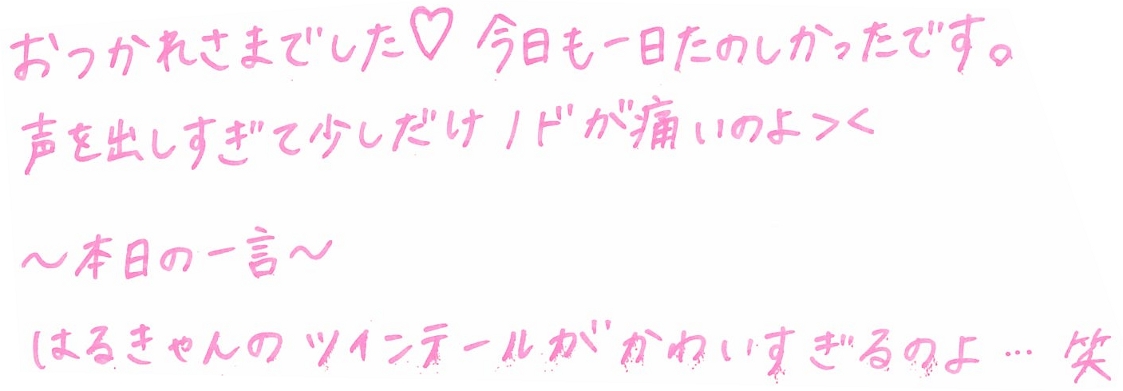 おつかれさまでした♡ 今日も一日たのしかったです。
声を出しすぎて少しだけノドが痛いのよ＞＜
～本日の一言～
はるきゃんのツインテールがかわいすぎるのよ… 笑